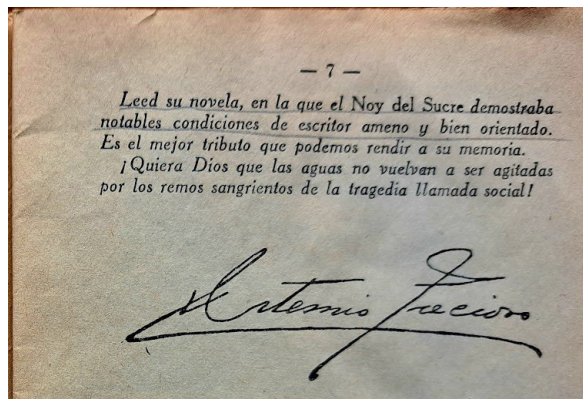 — 7 —
Leed su novela, en la que el Noy del Sucre demostraba
notables condiciones de escritor ameno y bien orientado.
Es el mejor tributo que podemos rendir a su memoria.
¡Quiera Dios que las aguas no vuelvan a ser agitadas
por los remos sangrientos de la tragedia llamada social!
Artemio Precioso